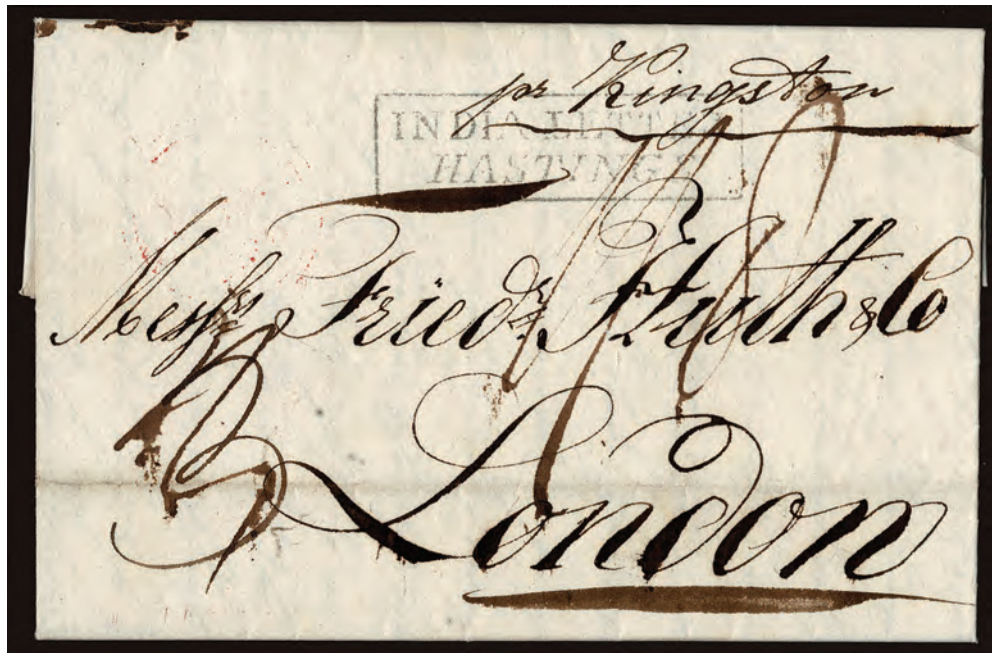 pr Kingston
INDIA LETTER
HASTINGS
Messrs Friedr. Huth & Co
London